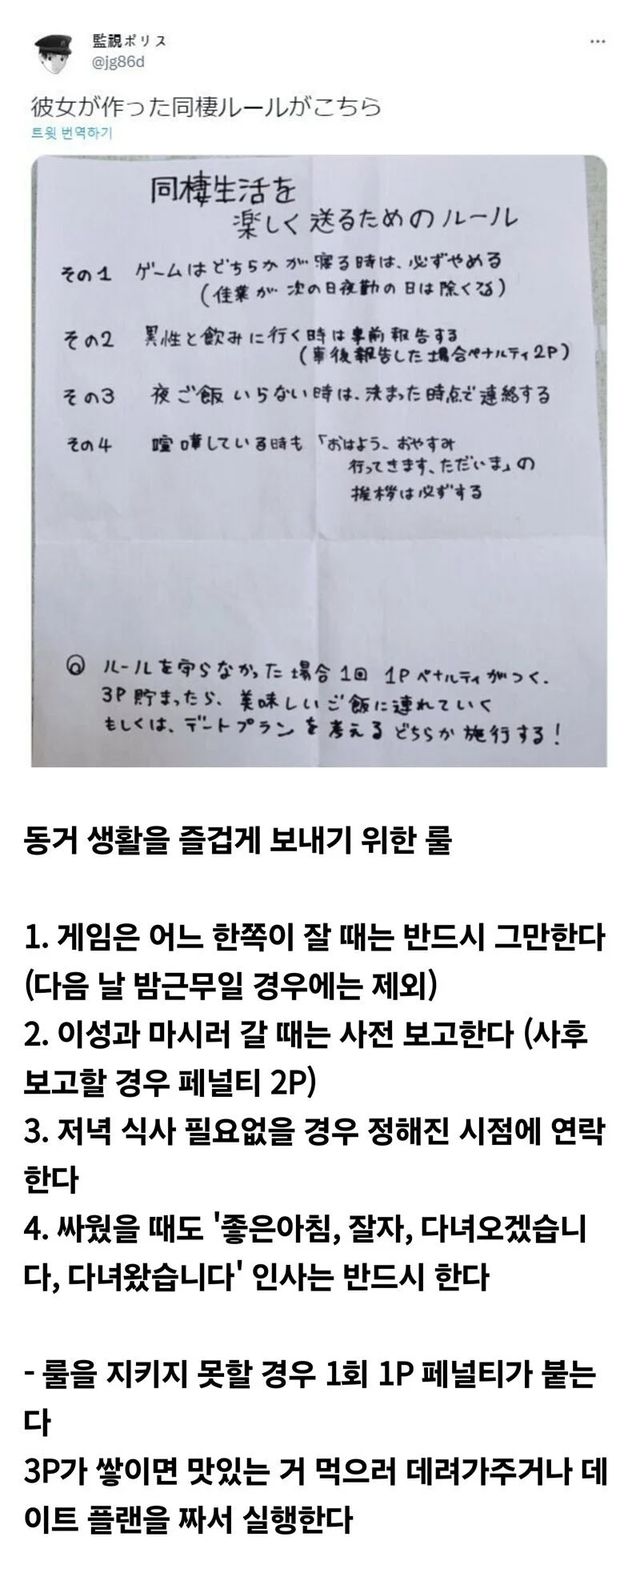 監視ポリス
@jg86d
彼女が作った同棲ルールがこちら
트윗 번역하기
同棲生活を
楽しく送るためのルール
その1 ゲームはどちらかが寝る時は、必ずやめる
(佳業が次の日夜勤の日は除くる)
その2 異性と飲みに行く時は事前報告する
(事後報告した場合ペナルティ2P)
その3 夜ご飯いらない時は、決まった時点で連絡する
その4 喧嘩している時も「おはよう、おやすみ
行ってきます、ただいま」の
挨拶は必ずする
ルールを守らなかった場合1回 1Pペナルティがつく.
3P貯まったら、美味しいご飯に連れていく
もしくは、デートプランを考えるどちらか施行する!
동거 생활을 즐겁게 보내기 위한 룰
1. 게임은 어느 한쪽이 잘 때는 반드시 그만한다
(다음 날 밤근무일 경우에는 제외)
2. 이성과 마시러 갈 때는 사전 보고한다 (사후
보고할 경우 페널티 2P)
3. 저녁 식사 필요없을 경우 정해진 시점에 연락
한다
4. 싸웠을 때도 '좋은아침, 잘자, 다녀오겠습니
다, 다녀왔습니다' 인사는 반드시 한다
- 룰을 지키지 못할 경우 1회 1P 페널티가 붙는
다
3P가 쌓이면 맛있는 거 먹으러 데려가주거나 데
이트 플랜을 짜서 실행한다